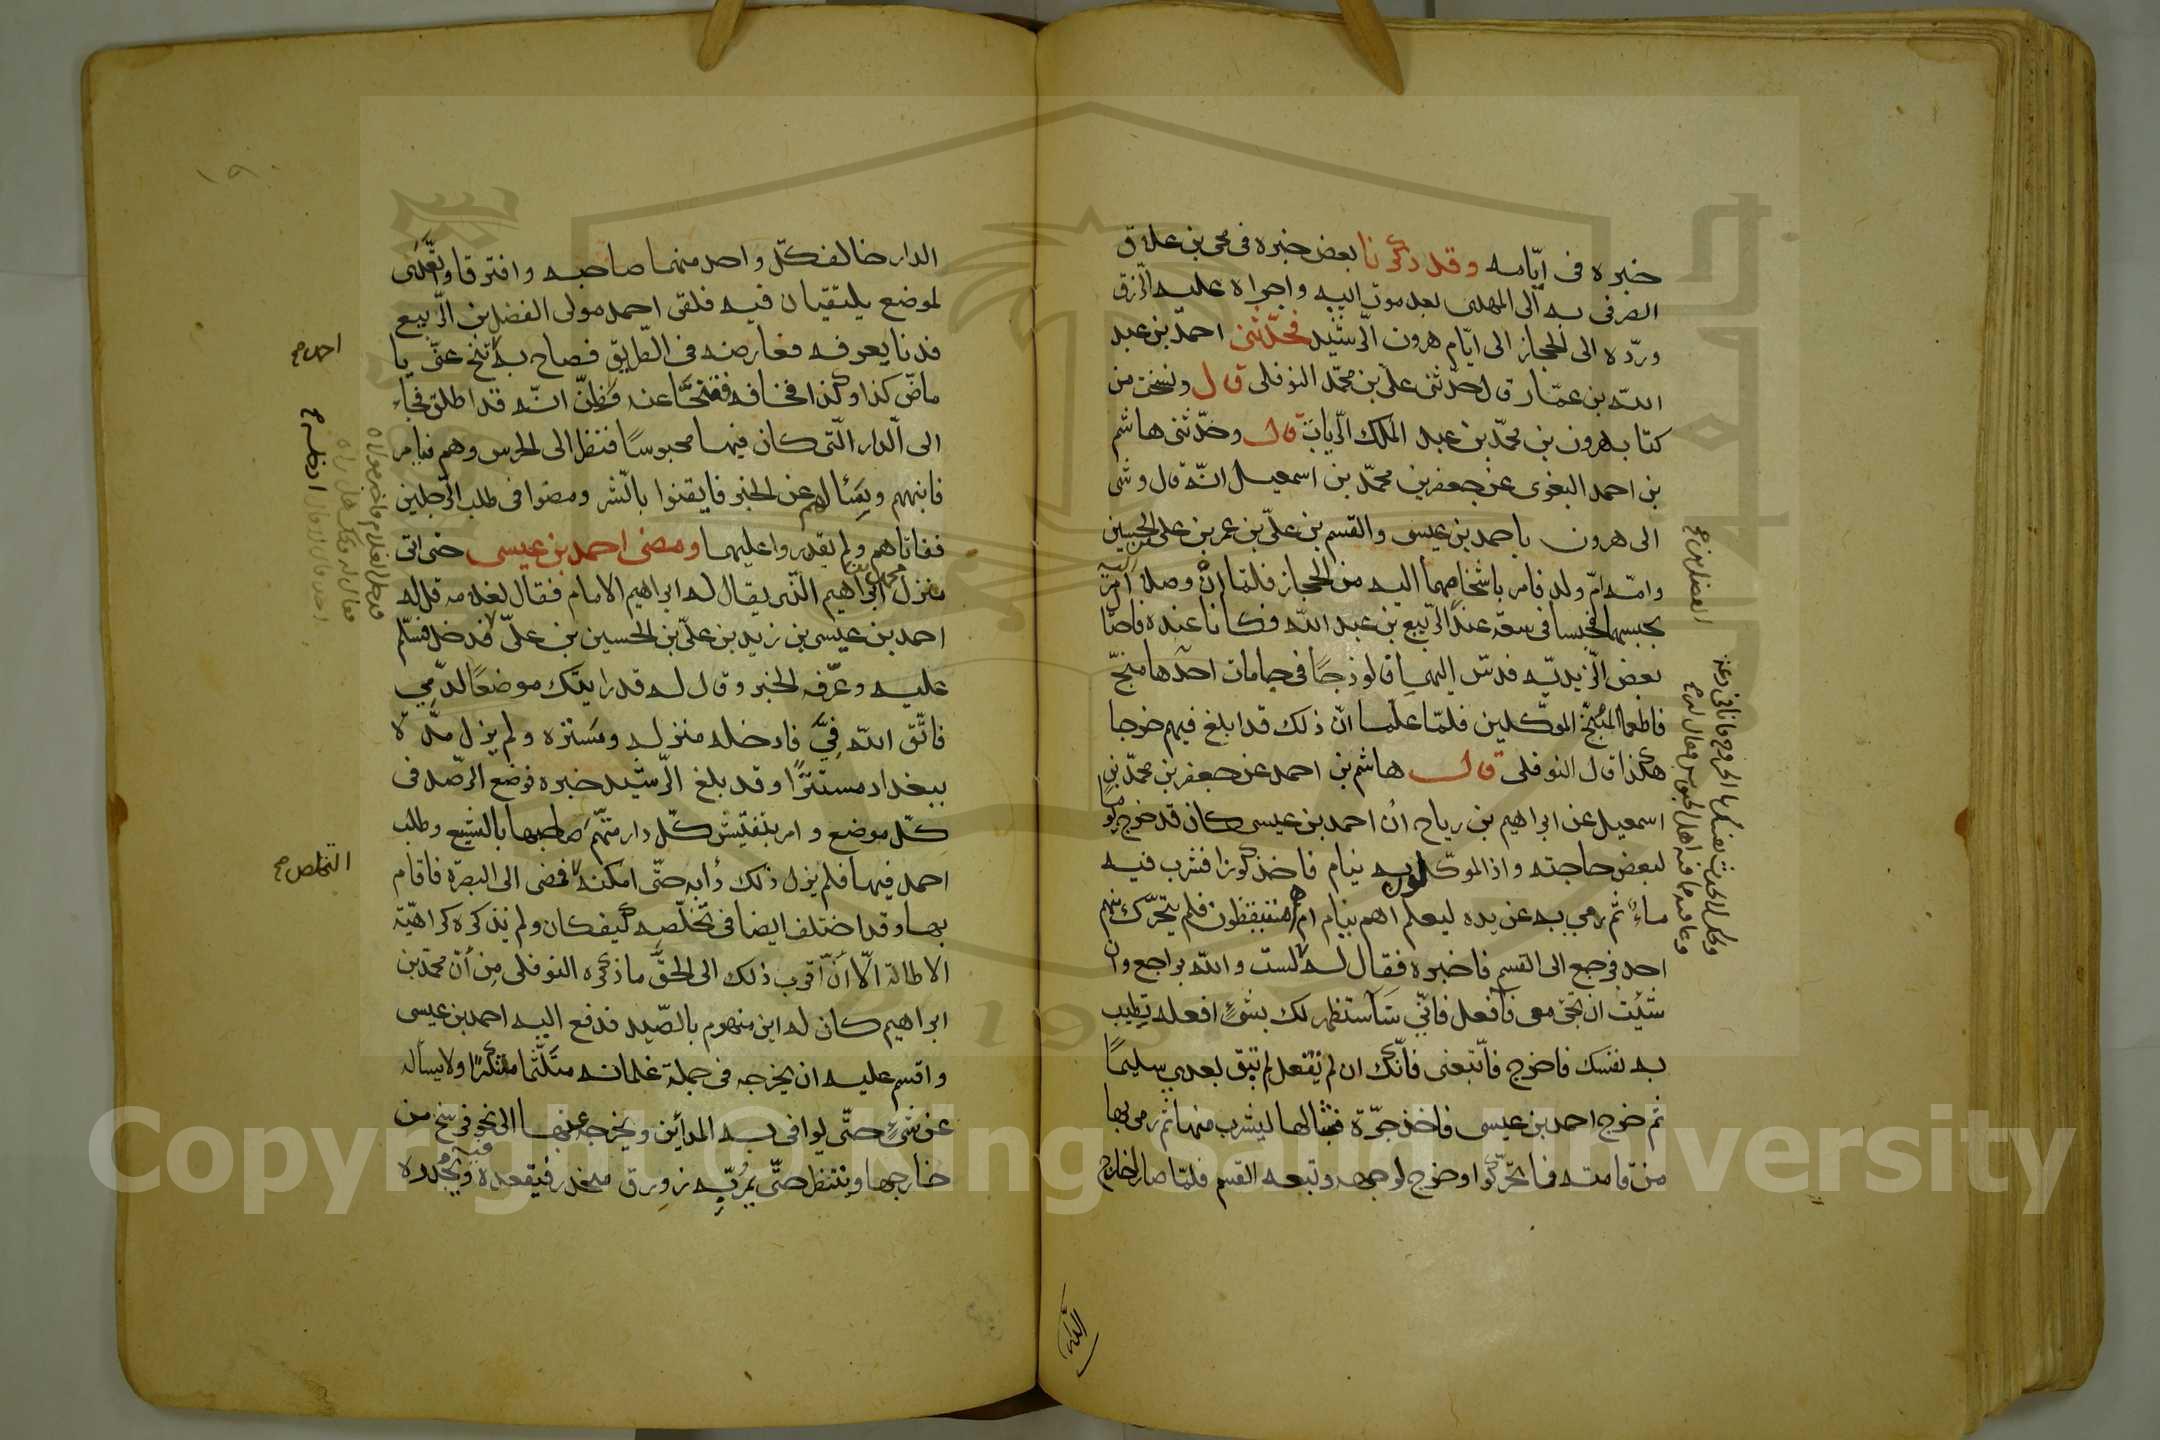 خبره فى ايّامه وقد ذكرنا بعض خبره فى محى بن علاق
الصرفى به الى المهدى بعد موت ابيه واجراه عليه الرّزق
وردّه الى الحجاز الى ايّام هرون الرّشيد فحدّثنى احمد بن عبد
اللّه بن عمّار قال حدّثنى علىّ بن محمّد النوفلى قال ونسخت من
كتاب هرون بن محمّد بن عبد الملك الزّيات قال وحدّثنى هاشم
بن احمد البغوى عن جعفر بن محمّد بن اسمعيل انّه قال وشى
الى هرون باحمد بن عيسى والقسم بن علىّ بن عمر بن على الحسين
وامّه امّ ولد فامر باشخاصهما اليه من الحجاز فلمّا ان وصلا امر
بحبسهما فحبسا فى سعة عند الرّبيع بن عبد اللّه فكانا عنده فاحتا
بعض الزّيديّه فدسّ اليهما فالوذجًا فى جامات احدها منبجّ
فاطعما المبُنّج الموكّلين فلمّا علما انّ ذلك قد ابلغ فيهم خرجا
هكذا قال النوفلى قال هاشم بن احمد عن جعفر بن محمّد بن
اسمعيل عن ابراهيم بن رياح ان احمد بن عيسى كان قد خرج يومًا
لبعض حاجته واذا الموكّلون به نيام فاخذ كوزا فشرب فيه
ماءً ثم رمى به عن يده ليعلم اهم نيام ام هم متيقظون فلم يتحرّك منهم
احد فرجع الى القسم فاخبره فقال له الست واللّه براجع وان
شئت ان تجئ معى فافعل فانّى سَاستظهر لك بشئٍ افعله تطيب
به نفسك فاخرج فاتّبعنى فانّك ان لم تفعل لم تبق بعدي سليمًا
ثم خرج احمد بن عيسى فاخذ جرّة فشالها ليشرب منها ثم رمى بها
من قامته فما تحرّكوا وخرج لوجهه وتبعه القسم فلمّا صار الخارج
الفضل بن ع
الدار
الدار خالف كلّ واحد منهما صاحبه وافترقا واتّعدى
لموضع يلتقيان فيه فلقى احمد مولى الفضل بن الرّبيع
فدنا يعرفه فعارضه فى الطّريق فصاح به تنح عنّى يا
ماصّ كذا وكذا فخافه فتنحّا عنه فظنّ انّه قد اطلق فجاء
الى الدار الّتى كان فيها محبوسًا فنظر الى الحرس وهم نيام
فانبههم ويسالهم عن الخبر فايقنوا بالشر ومضوا فى طلب الرّجلين
ففاتاهم ولم يقدروا عليهما ومضى احمد بن عيسى حتى اتى
منزل محمد بن ابراهيم الّذى يقال له ابراهيم الامام فقال لغلامه قل له
احمد بن عيسى بن زيد بن علىّ بن الحسين بن علىّ فدخل فسلّم
عليه وعرّفه الخبر وقال له قد رايتك موضعًا لدمي
فاتّق اللّه فيَّ فادخله منزله وستره ولم يزل مدّة
ببغداد مستترًا وقد بلغ الرّشيد خبره فوضع الرّصد فى
كلّ موضع وامر بتفتيش كلّ دار متّهم صاحبها بالتشيع وطلب
احمد فيها فلم يزل ذلك دأبه حتّى امكنه فمضى الى البصرة فاقام
بها وقد اختلف ايضا فى تخلّصه كيف كان ولم نذكره كراهيّة
الاطالة الّا انّ اقرب ذلك الى الحقّ ما ذكره النوفلى من أنّ محمّد بن
ابراهيم كان له ابن منهوم بالصّيد فدفع اليه احمد بن عيسى
واقسم عليه ان يخرجه فى جملة غلمانه متلثّما متنكّرًا ولا يساله
عن شئٍ حتّى يوافى به المدأئن ويخرجه عنها الى نحو فرسخ من
خارجها وينتظر حتّى يمرّ به زورق منحدر فيقعده فيه ويحدره
احمد ع
التخلص ع